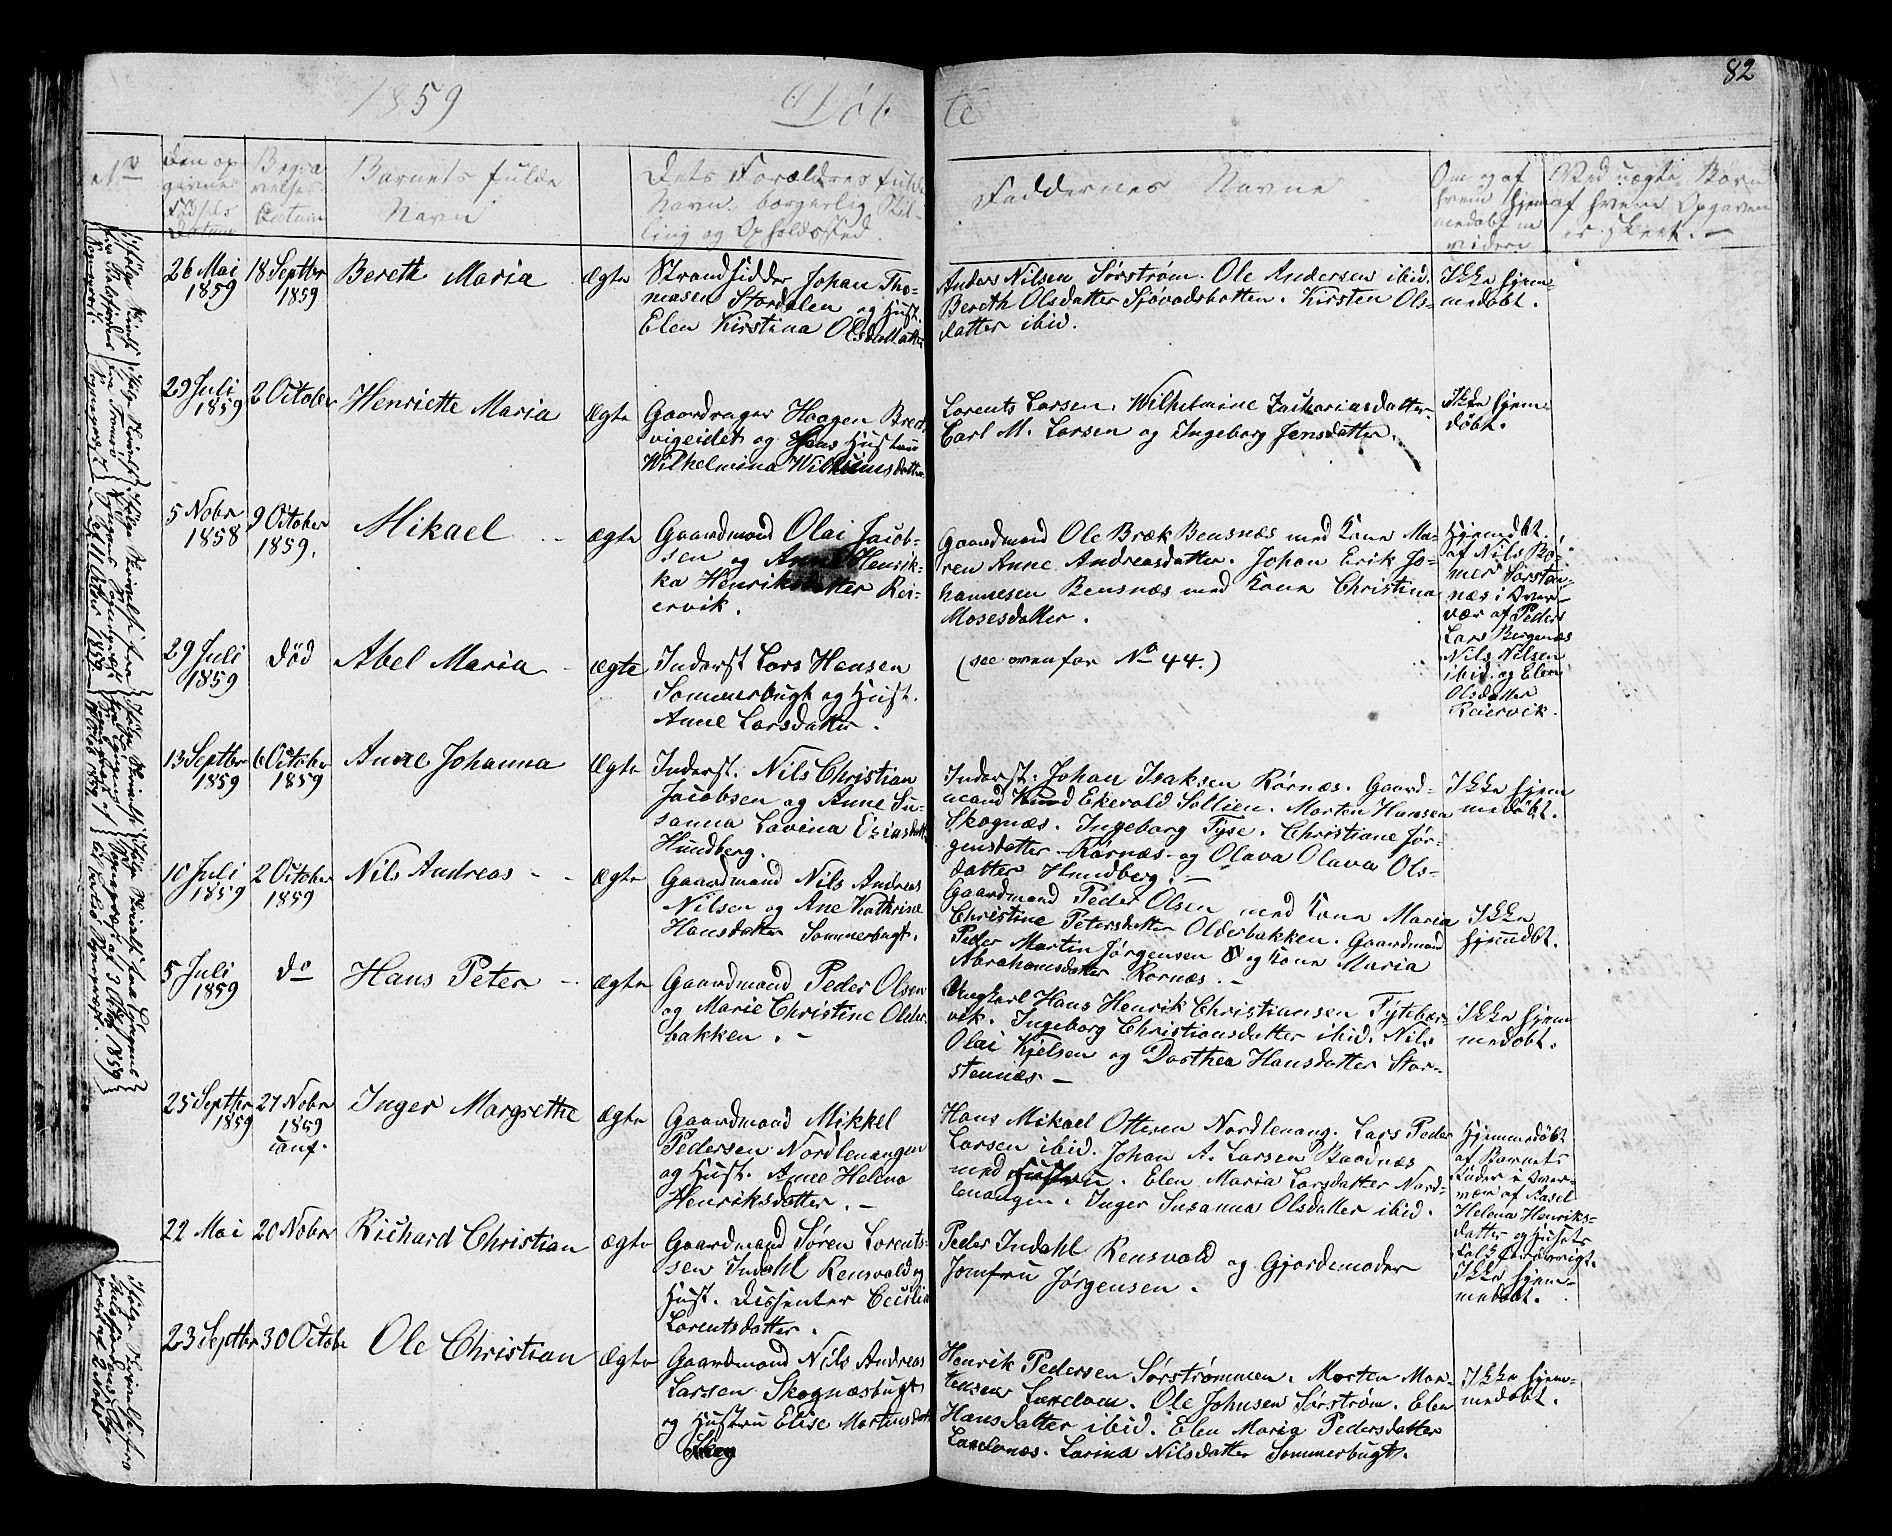 82
1859
Döb te
No
Den op
givne
Fødsels
Datum
Begra
velses-
Datum
Barnets fulde
Navn
Dets Forældres fulde
Navn, borgerlig Stil-
ling og Opholdssted.
Faddernes Navne
Om og af
hvem hjem
medøbt m
videre
Ved uægte Børn
af hvem Opgaven
er skeet. —
26 Mai
1859
18 Septbr
1859
Bereth Maria
Ægte
Strandsidder Johan Tho-
mesen Stordalen og Hust.
Elen Kirstina Olsdatter
Anders Nilsen Sørstrøm. Ole Andersen ibid.
Bereth Olsdatter Sjøvodsbotten. Kirsten Ols-
datter ibid.
Ikke hjem-
medøbt.
29 Juli
1859
2 October
Henriette Maria
Ægte
Gaardruger Haagen Bred
vigeidet og Hans Hustrue
Wilhelmina Wilhelmsdatter
Lorents Larsen. Wilhelmine Zachariasdatter.
Carl M. Larsen og Ingeborg Jensdatter.
Ikke hjem-
døbt.
5 Nobr
1858
9 October
1859.
Mikael
ægte
Gaardmand Olai Jacob-
sen og Anne Henrik-
ka Henriksdatter Rei-
ervik.
Gaardmand Ole Bræk Bensnæs med Kone Ma-
ren Anne Andreasdatter. Johan Erik Jo-
hannesen Bensnæs med Kone Christina
Mosesdatter.
Hjemmedøbt
af Nils Ro-
mer Sorsten-
næs i Over-
vær af Peder
Lars Bergenæs
Nils Nilsen
ibid. og Elen
Olsdatter
Reiervik.
29 Juli
1859
død
Abel Maria
ægte
Inderst Lars Hansen
Sommerbugt og Hust.
Anne Larsdatter.
(see ovenfor No 44.)
13 Septbr
1859
6 October
1859
Anne Johanna
Ægte
Inderst. Nils Christian
Jacobsen og Anne Su-
sanna Lovina Esiasdatt
Hundberg.
Inderst. Johan Isaksen Rörnæs. Gaard-
mand Knud Ekerold Sollien. Morten Hansen
Skognæs. Ingeborg Fyse. Christiane Jör-
gensdatter Rörnæs og Olava Olava Ols-
datter Hundberg. —
Ikke hjem
medøbt.
10 Juli
1859
2 October
1859
Nils Andreas
ægte
Gaardmand Nils Andreas
Nilsen og Ane Kathrine
Hansdatter Sommerbugt.
Gaardmand Peder Olsen med Kone Maria
Christine Petersdatter Olderbakken. Gaardmand
Peder Martin Jørgensen og Kone Maria
Abrahamsdatter Rornæs. —
Ikke
hjemdøbt.
5 Juli
1859
do
Hans Peter
ægte
Gaardmand Peder Olsen
og Marie Christine Older-
bakken. —
Ungkarl Hans Henrik Christiansen Tytebær-
vik. Ingeborg Christiansdatter ibid. Nils
Olai Kjelsen og Dorthea Hansdatter Stor-
stennæs —
Ikke hjem
medøbt.
25 Septbr
1859
27 Nobr
1859
conf.
Inger Margrethe
ægte
Gaardmand Mikkel
Pedersen Nordlenangen
og Hust. Anne Helena
Henriksdatter. —
Hans Mikael Ottesen Nordlenang. Lars Peder
Larsen ibid. Johan A. Larsen Baadnæs
med Hustru. Elen Maria Larsdatter Nord-
lenangen. Inger Susanna Olsdatter ibid.
Hjemmedøbt
af Barnets
Fader i Over-
vær af Basel
Helena Henriks-
datter og Husets
Folk forøvrigt.
22 Mai
20 Nobr
Richard Christian
ægte
Gaardmand Søren Lorents-
sen Indahl Rensvold og
Hust. Dissenter Cecilia
Lorentsdatter.
Peder Indahl Rensvold og Gjordemoder
Jomfru Jørgensen.
Ikke hjem-
medøbt.
23 Septbr
30 Octobr
Ole Christian
ægte
Gaardmand Nils Andreas
Larsen Skognæsbugt
og Hustru Elise Martinsdatt
Skog
Henrik Pedersen Sørstrømmen. Morten Mor-
tensen Larslom. Ole Johnsen Sørstrøm. Elen
Hansdatter ibid. Elen Maria Pedersdatter
Larslonæs. Larina Nilsdatter Sommerbugt.
Ikke hjem-
medøbt.